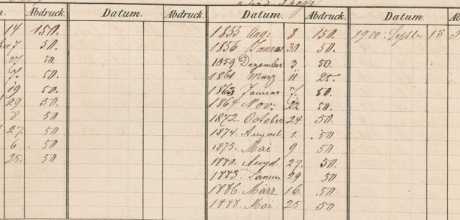 Abdruck. Datum. Abdruck. Datum. Abdruck. Datum.
14 150. 1855 Aug. 8 150. 1900 Septb. 15
7 50. 1856 Januar 30 50.
50. 1859 Dezember 3 50.
50. 1861 März 11 25.
19 50. 1863 Januar 7 50.
29 50. 1864 Nov. 22 50.
8 50 1872 October 24 50.
27 50 1874 August 1. 50.
6 50 1875. Mai 9 50
25. 50 1880. 27. 50
1883 Januar 29 50
1886 März 16. 50.
1888 Mai 25 50